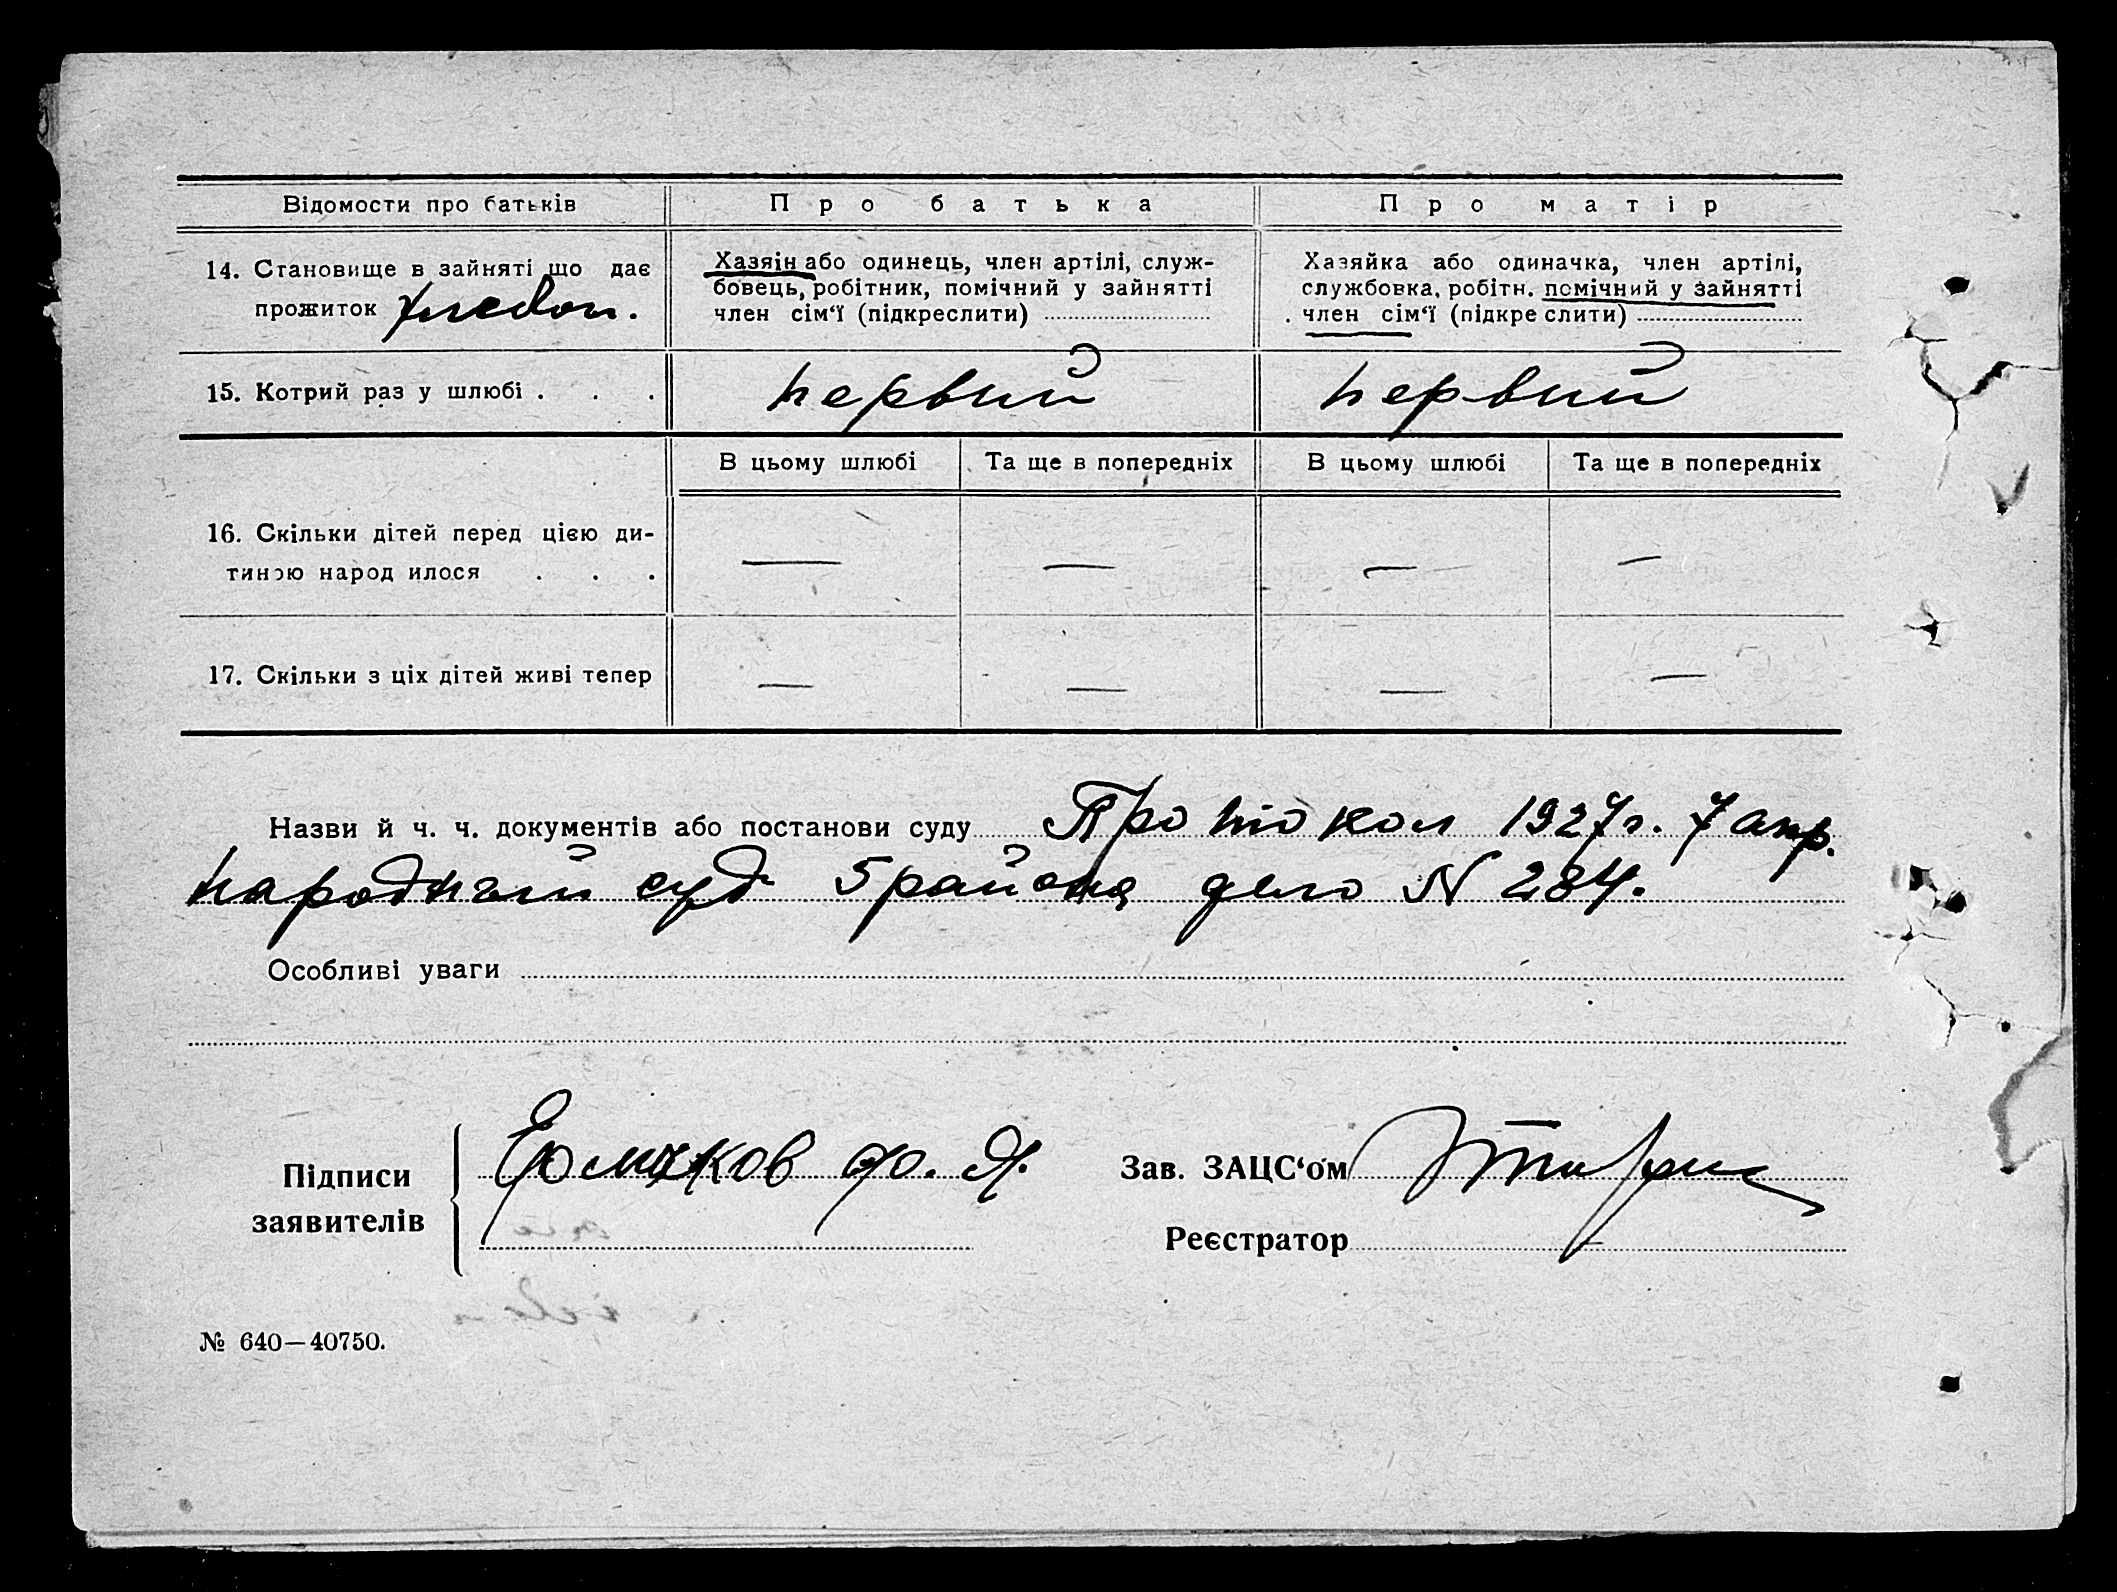 Відомости про батьків
Про батька
Про матір
14. Становище в зайняті що дає
прожиток
Хазяін або одинець, член артілі, служ-
бовець, робітник, помічний у зайнятті
член сім‘ї (підкреслити)
Хазяйка або одиначка, член артілі,
службовка, робітн. помічний у зайнятті
член сім‘ї (підкреслити)
15. Котрий раз у шлюбі . . .
первий
первий
В цьому шлюбі
Та ще в попередніх
В цьому шлюбі
Та ще в попередніх
16. Скільки дітей перед цією ди-
тиною народилося . . .
— — — —
17. Скільки з ціх дітей живі тепер
— — — —
Назви й ч. ч. документів або постанови суду Протокол 1927 г. 7 апр.
народный суд 5 района дело N 284.
Особливі уваги
Підписи
заявителів
Ермаков Ф. Я.
Зав. ЗАЦС‘ом
Реєстратор
№ 640—40750.